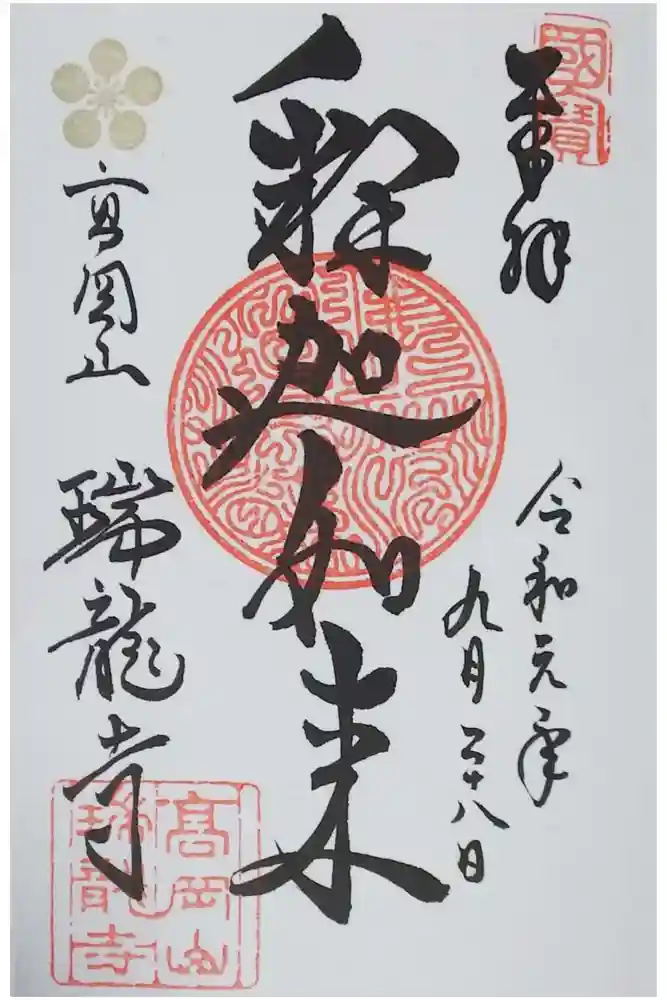 國寶
奉拝
令和元年
九月二十八日
釋迦如来
高岡山 瑞龍寺
高岡山
瑞龍寺